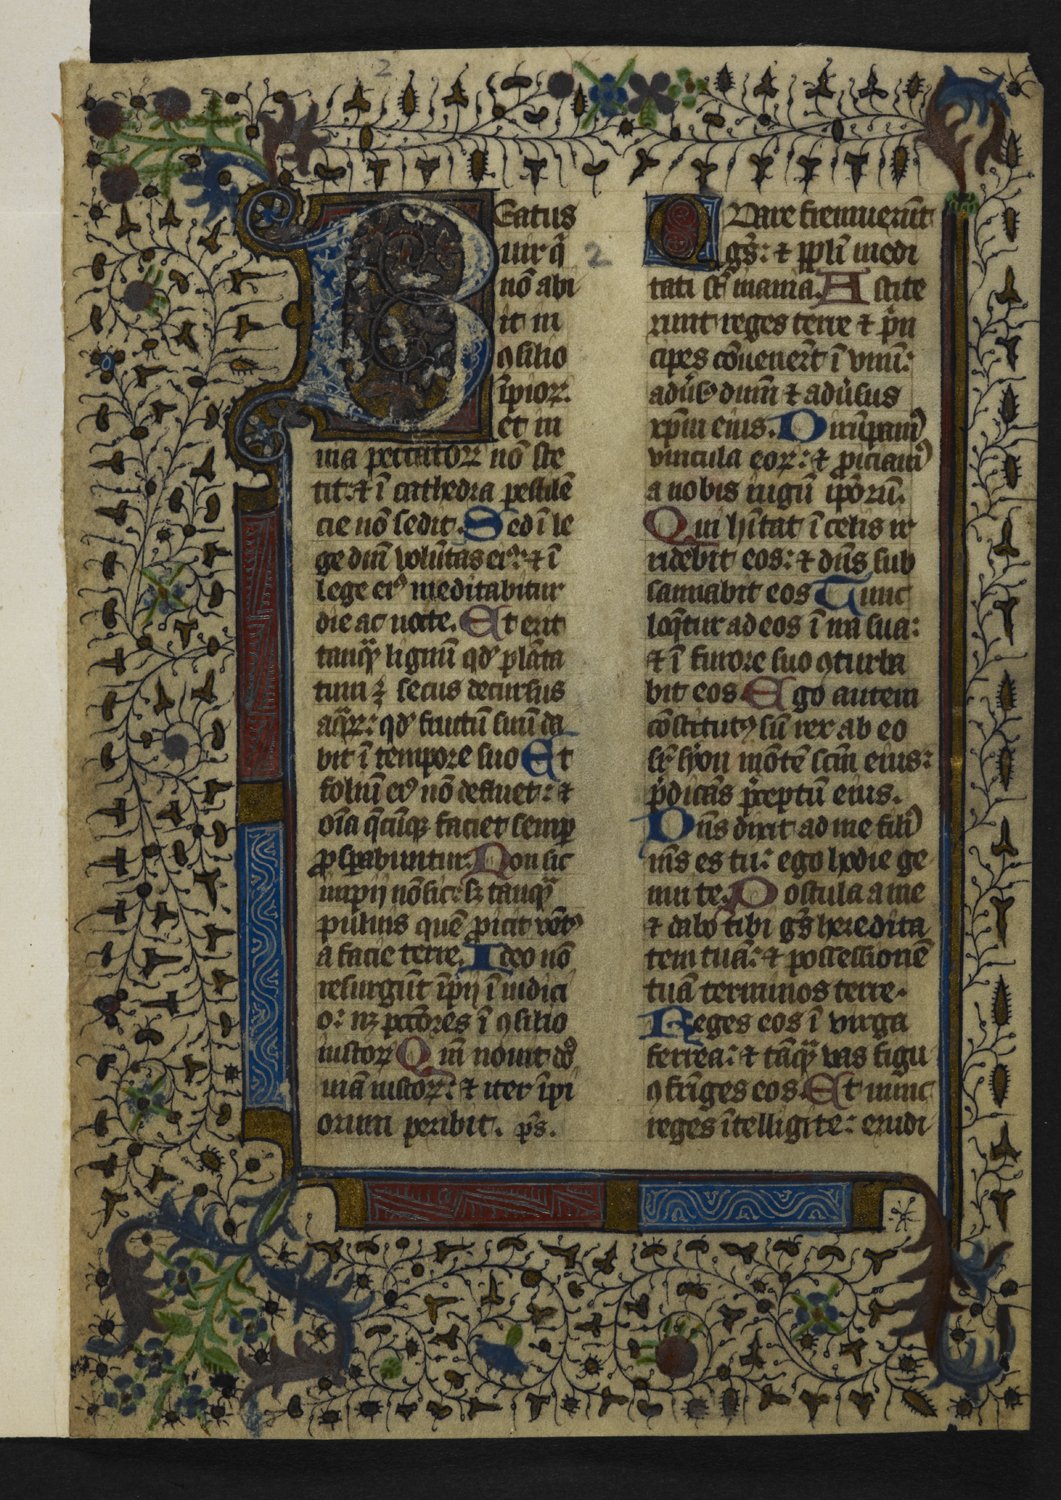 2
Beatus
uir q̄
nō abi
it in
ꝯsilio
īpioꝝ:
et in
uia peccatoꝝ nō ste
tit: ⁊ ī cathedra pestilē
cie nō sedit. Sed ī le
ge dn̄i volūtas eiꝰ: ⁊ ī
lege eiꝰ meditabitur
die ac nocte. Et erit
tanqͣꝫ lignū qd' plāta
tum ē secus decursus
aqͣꝝ: qd' fructū suū da
bit ī tempore suo Et
foliū eiꝰ nō defluet: ⁊
oīa q̄cūqꝫ faciet semꝑ
ꝓsꝑabuntur. Non sic
impij nō sic: sꝫ tanqͣꝫ
puluis quē ꝓicit vētꝰ
a facie terre. Ideo nō
resurgūt īpij ī iudici
o: nꝫ pctōres ī ꝯsilio
iustoꝝ Qm̄ nouit dn̄s
uiam iustoꝝ: ⁊ iter īpi
orum peribit. p̄s.
2
Quare fremuerūt
gn̄s: ⁊ ppl̄i medi
tati sūt inania. Astite
runt reges terre ⁊ pͥn
cipes cōuenerūt ī vnū:
adūsꝰ dn̄m ⁊ adūsus
xp̄m eius. Dirūpamꝰ
vincula eoꝝ: ⁊ ꝓiciamꝰ
a nobis iugū ipōrū.
Qui hītat ī celis ir
ridebit eos: ⁊ dn̄s sub
sannabit eos Tunc
loq̄tur ad eos ī ira sua:
⁊ ī furore suo ꝯturba
bit eos Ego autem
cōstitutꝰ sū rex ab eo
sr̄ syon mōtē scm̄ eius:
p̄dicās p̄ceptū eius.
Dn̄s dixit ad me filiꝰ
mꝰs es tu: ego hodie ge
nui te. Postula a me
⁊ dabo tibi gn̄s heredita
tem tuā: ⁊ possessionē
tuā terminos terre.
Reges eos ī virga
ferrea: ⁊ tāqͣꝫ vas figu
li ꝯfrīges eos. Et nunc
reges ītelligite: erudi